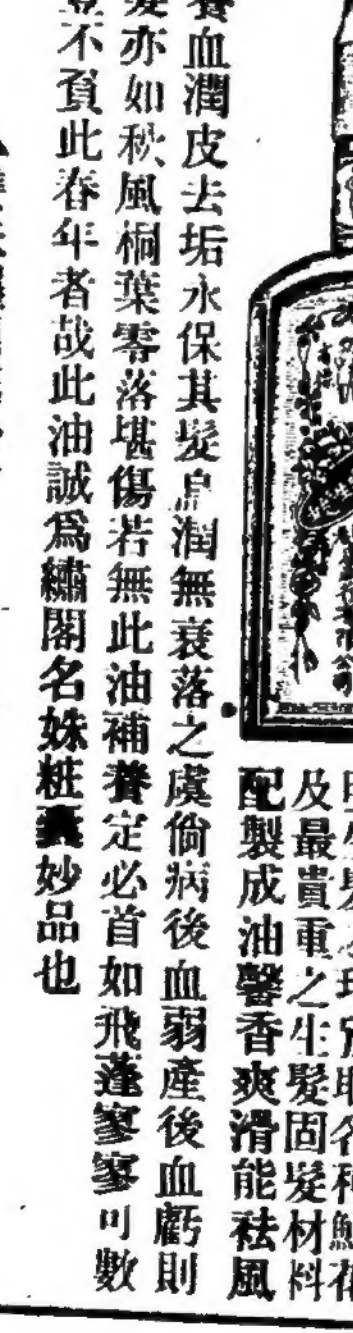 及最貴重之生髮固髮材料
配製成油馨香爽滑能祛風
養血潤皮去垢永保其髮烏潤無衰落之虞倘病後血弱產後血虧則
髮亦如秋風桐葉零落堪傷若無此油補養定必首如飛蓬寥寥可數
豈不負此春年者哉此油誠爲繡閣名姝粧妙品也